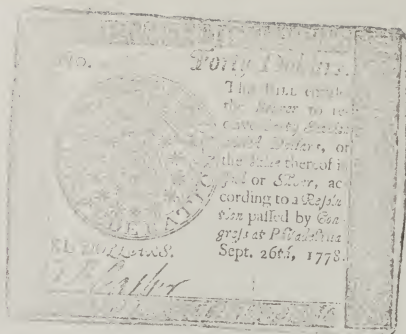 No. Forty Dollars.
This Bill entitles
the Bearer to re-
ceive Forty Spanish
milled Dollars, or
the Value thereof in
Gold or Silver, ac
cording to a Resolu
tion passed by Con
gress at Philadelphia
Sept. 26th, 1778.
CONFEDERATION
XL DOLLARS.